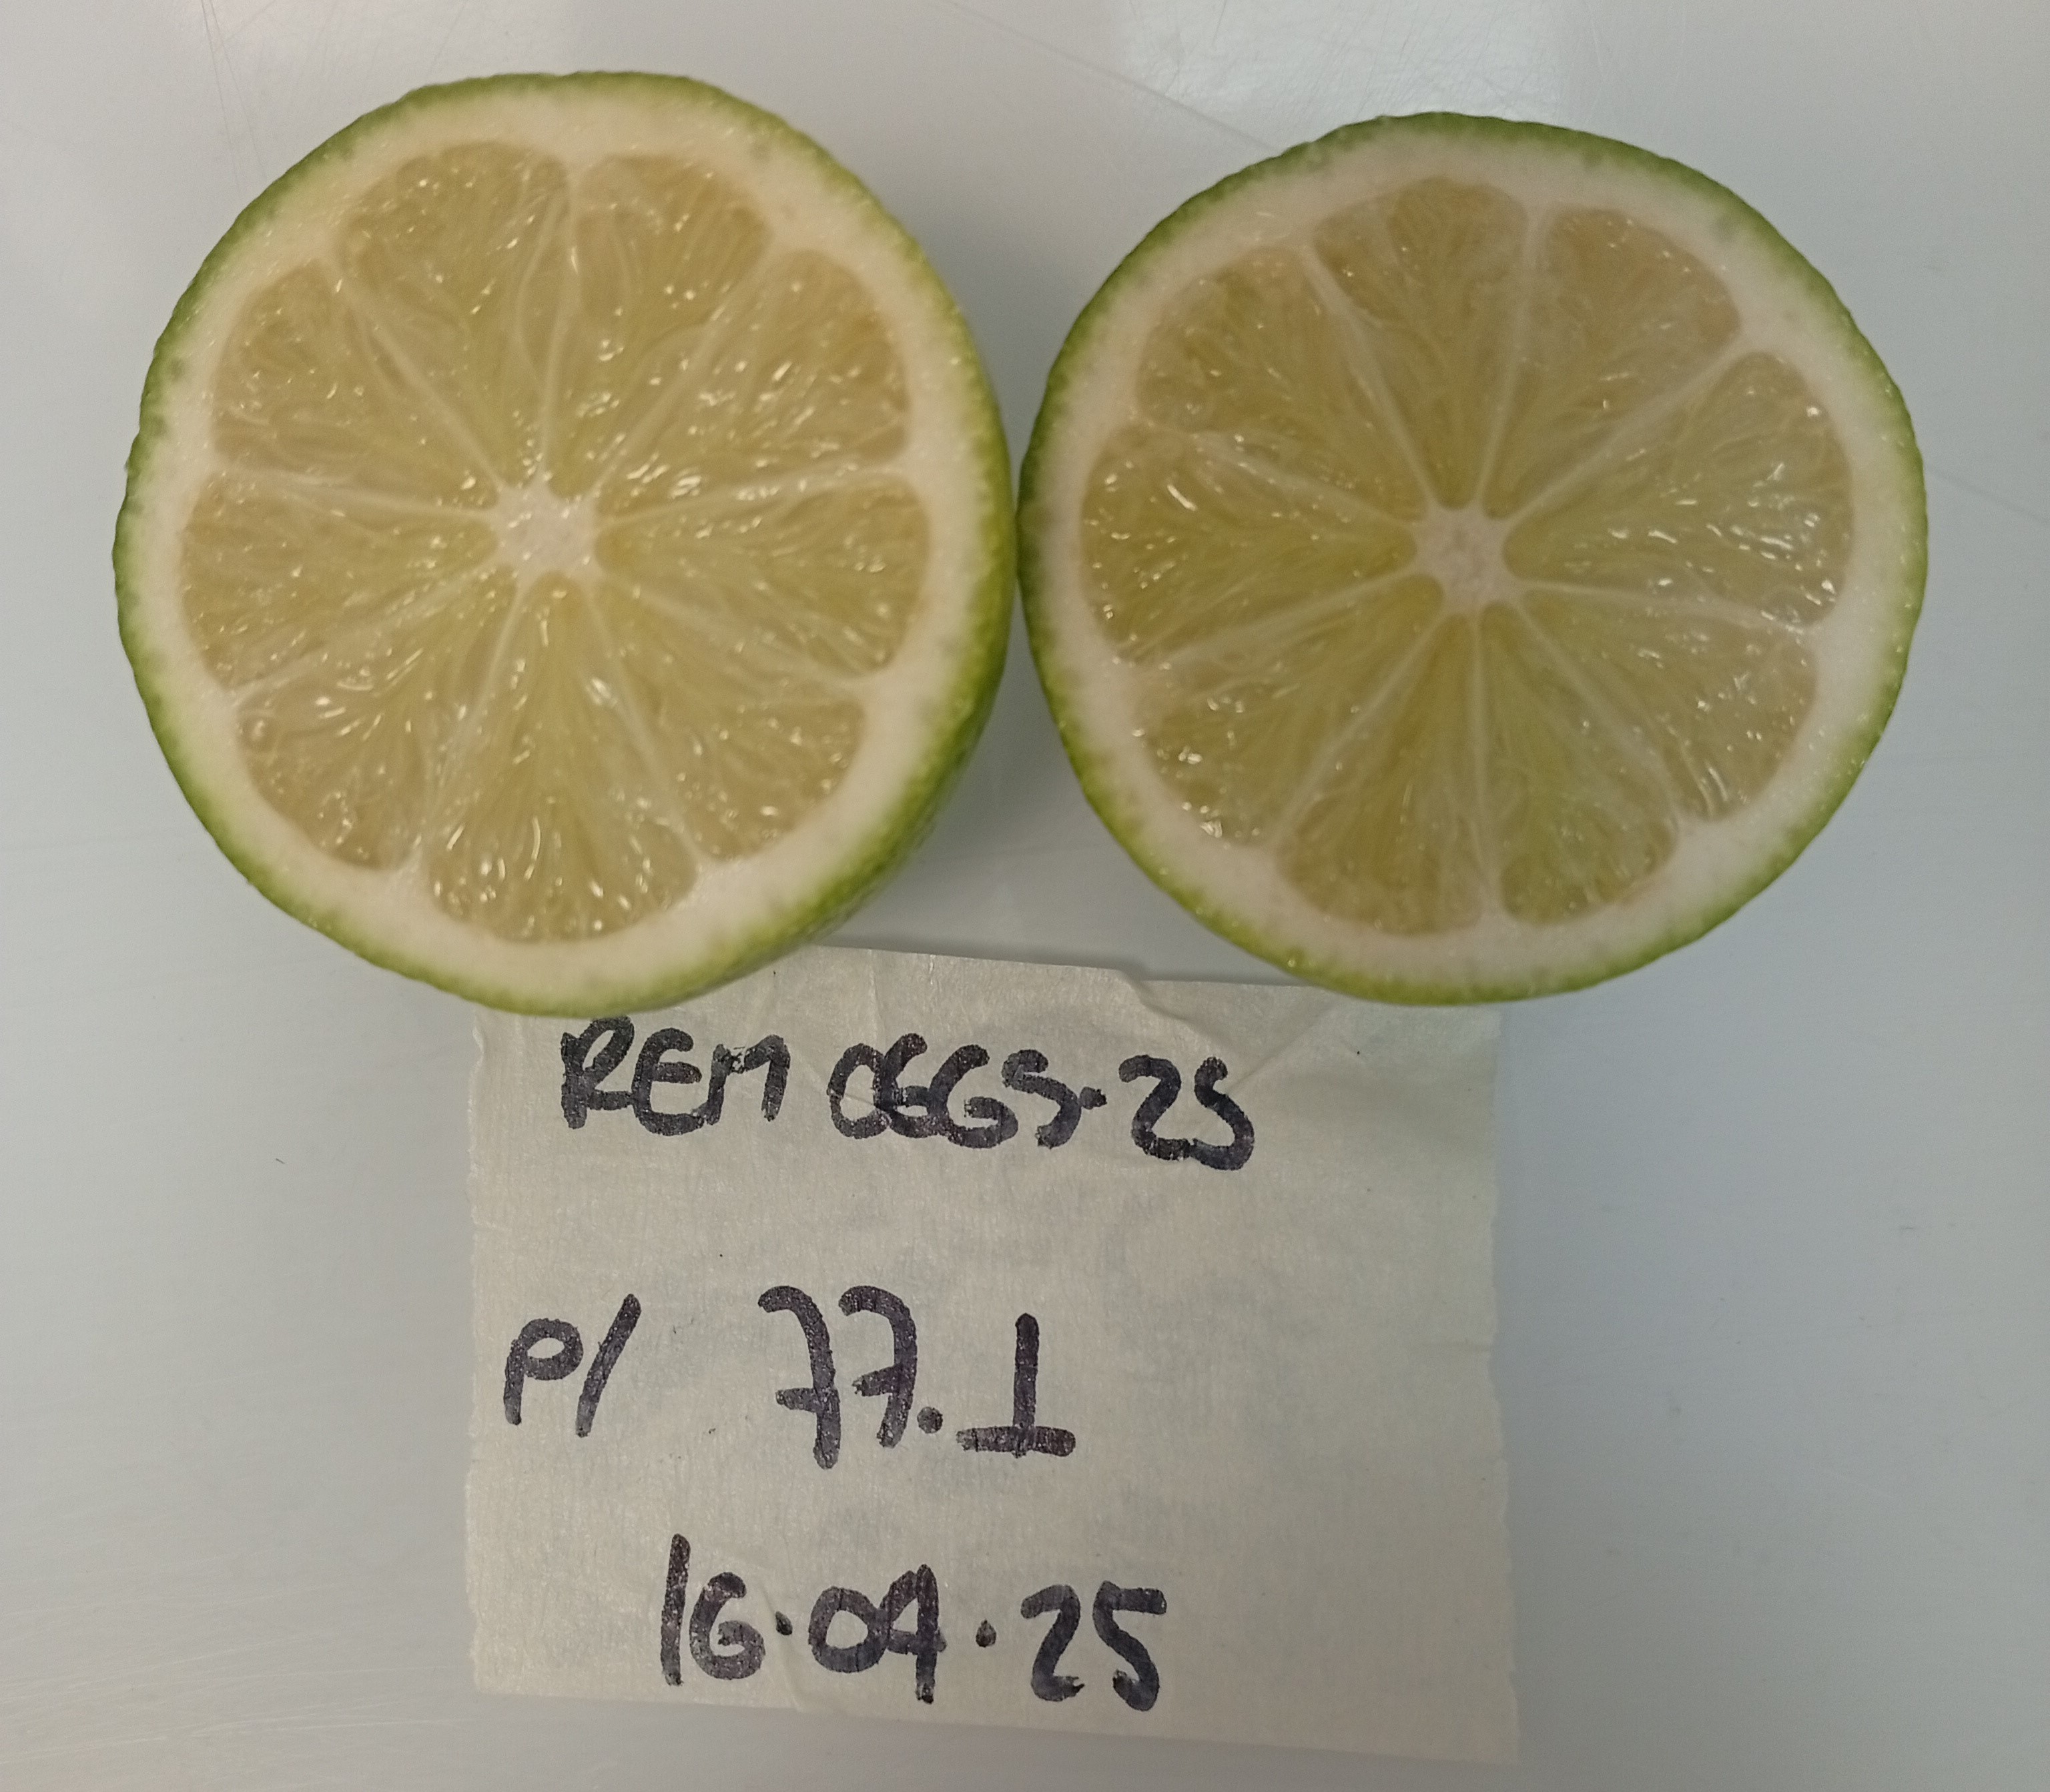 REM 0665.25
P/ 77.1
16.04.25